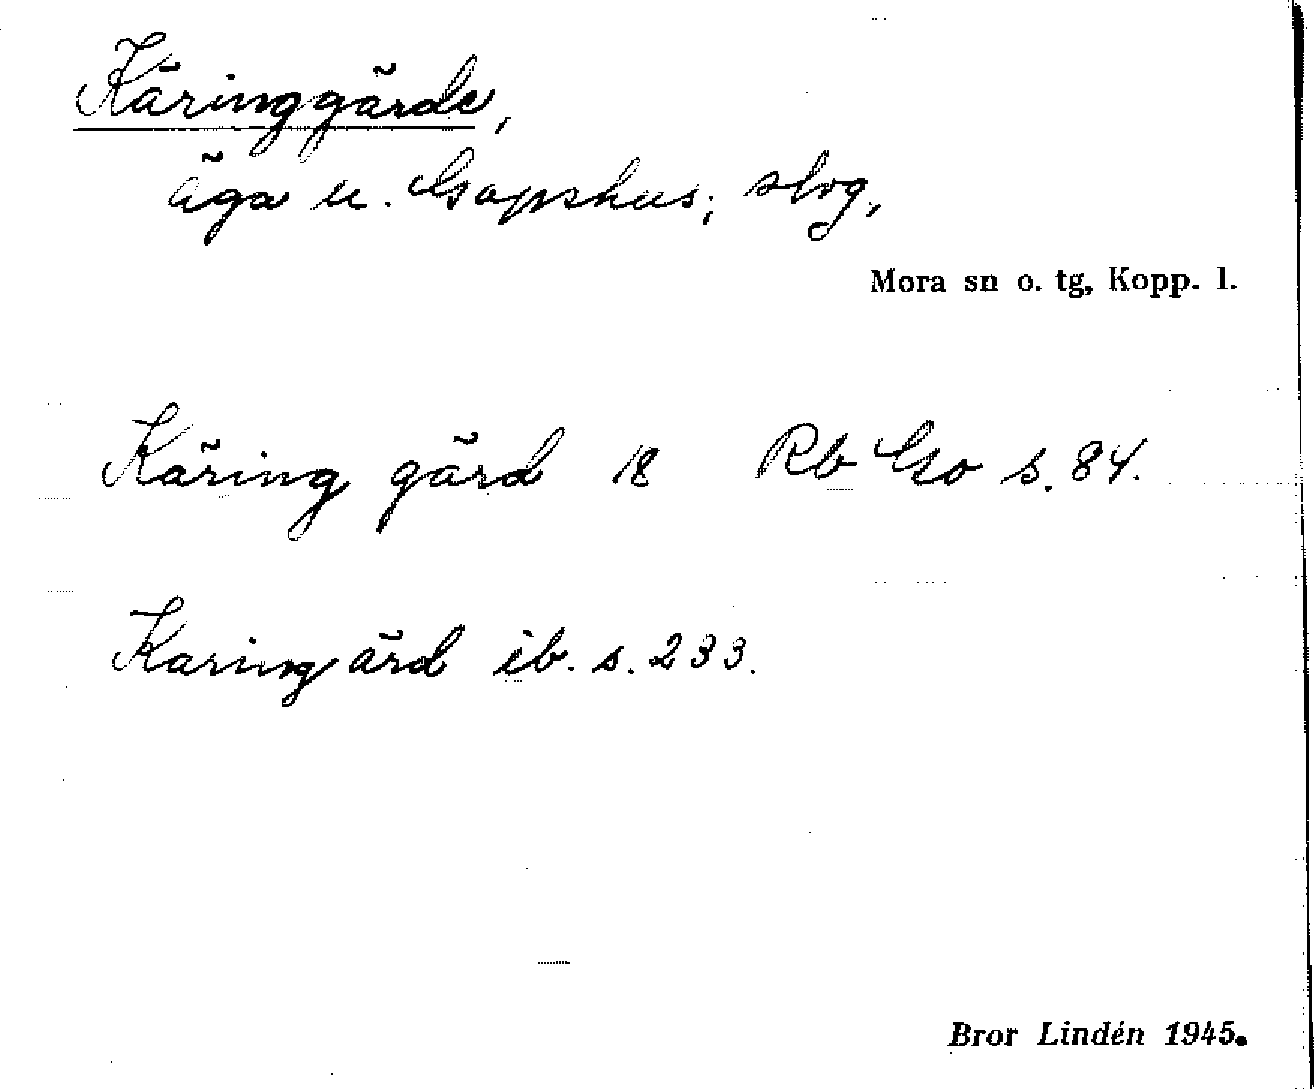 Käringgärde,
äga u. Gopshus; slog,
Mora sn o. tg, Kopp. l.
Käring gärd 18 Rb Go s. 84.
Karingärd ib. s. 233.
Bror Lindén 1945.